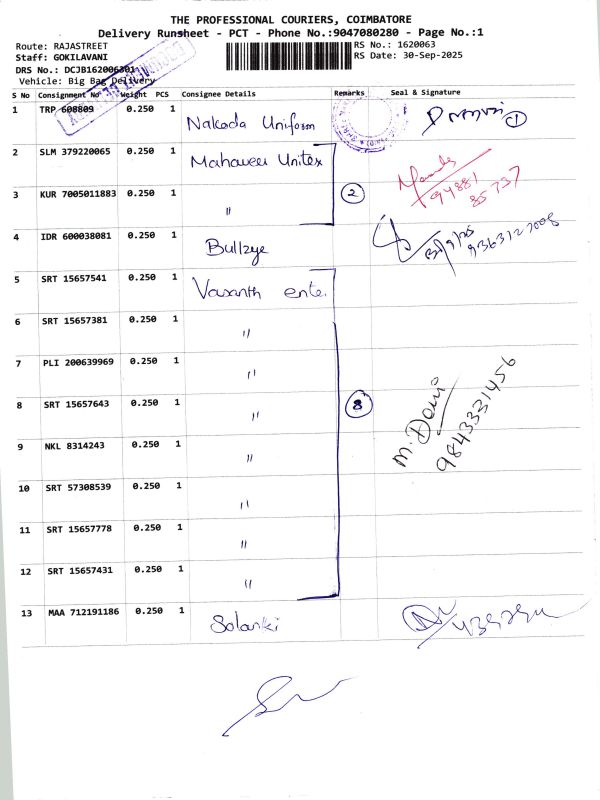 THE PROFESSIONAL COURIERS, COIMBATORE
Delivery Runsheet - PCT - Phone No.:9047080280 - Page No.:1
Route: RAJASTREET
RS No.: 1620063
Staff: GOKILAVANI
RS Date: 30-Sep-2025
DRS No.: DCJB162006301
Vehicle: Big Bag Delivery
S No Consignment No Weight PCS Consignee Details Remarks Seal & Signature
1 TRP 608809 0.250 1 Nakoda Uniform 1
2 SLM 379220065 0.250 1 Mahaveer Unitex
94881
85737
3 KUR 7005011883 0.250 1 " 2
4 IDR 600038081 0.250 1 Bullzye
5 SRT 15657541 0.250 1 Vasanth ente.
6 SRT 15657381 0.250 1 "
7 PLI 200639969 0.250 1 "
8 SRT 15657643 0.250 1 " 8 M. Devi
9843331456
9 NKL 8314243 0.250 1 "
10 SRT 57308539 0.250 1 "
11 SRT 15657778 0.250 1 "
12 SRT 15657431 0.250 1 "
13 MAA 712191186 0.250 1 Solanki